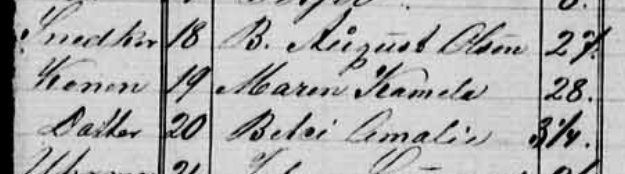 Snedker 18 B. August Olsen 27.
Konen 19 Maren Kamela 28.
Datter 20 Betsi Amalie 3/4.